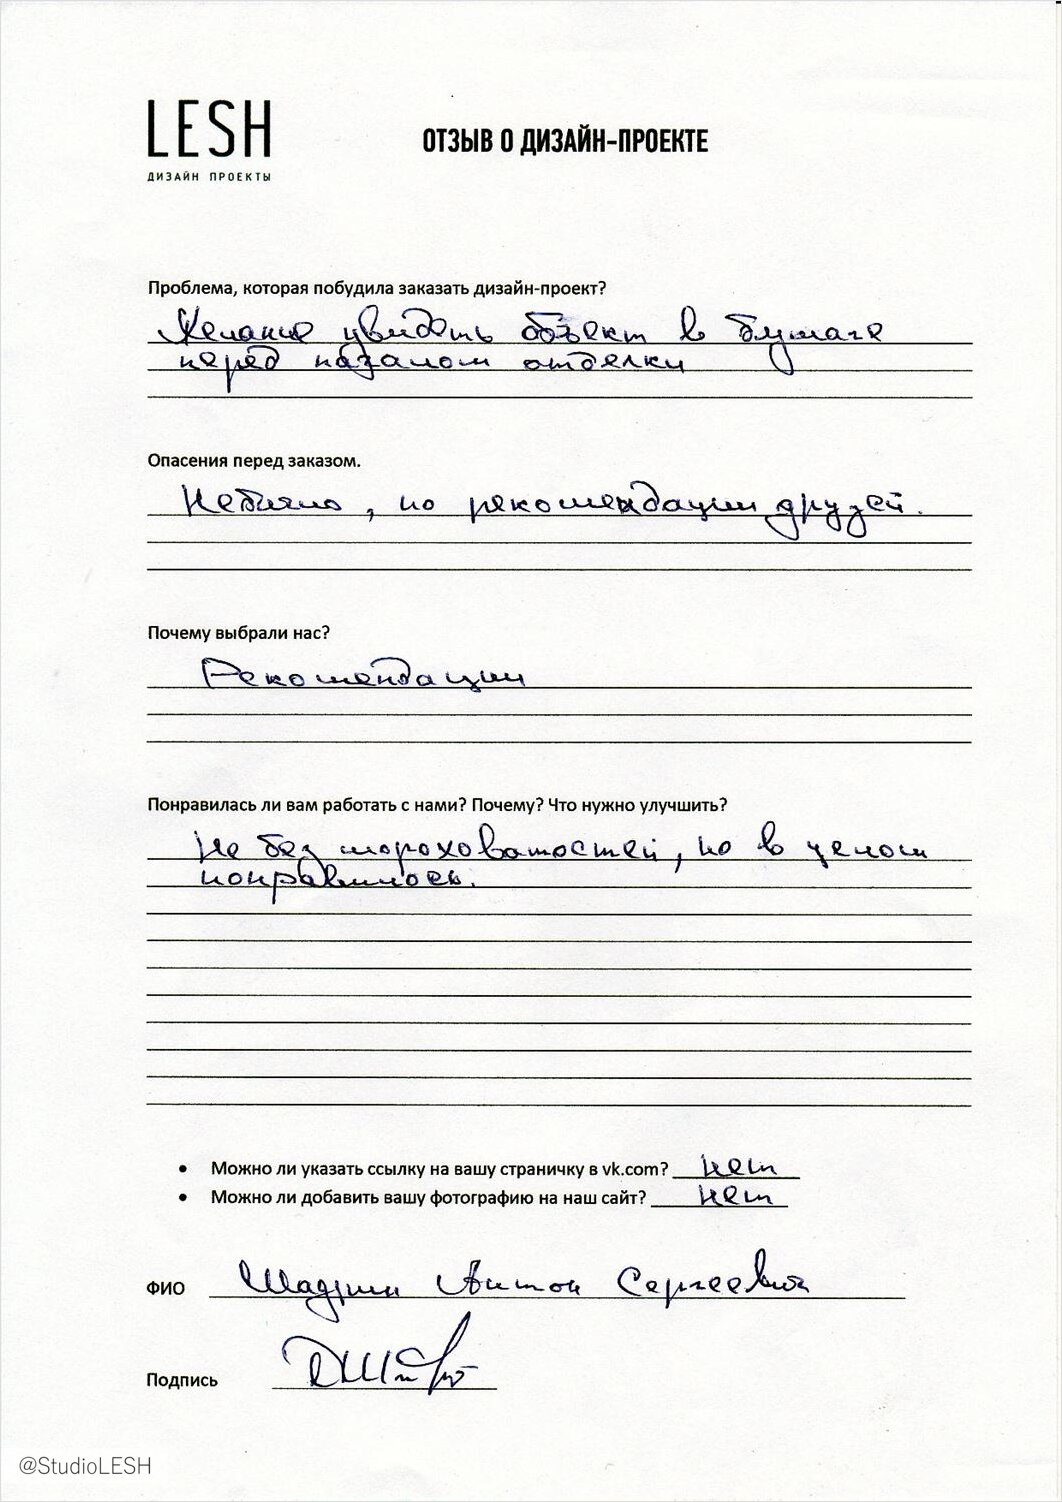 LESH
ДИЗАЙН ПРОЕКТЫ
ОТЗЫВ О ДИЗАЙН-ПРОЕКТЕ
Проблема, которая побудила заказать дизайн-проект?
Желание увидеть объект в бумаге
перед началом отделки
Опасения перед заказом.
Небыло, по рекомендации друзей.
Почему выбрали нас?
Рекомендации
Понравилась ли вам работать с нами? Почему? Что нужно улучшить?
Не без шороховатостей, но в целом
понравилось.
• Можно ли указать ссылку на вашу страничку в vk.com? нет
• Можно ли добавить вашу фотографию на наш сайт? нет
ФИО Шадрин Антон Сергеевич
Подпись
@StudioLESH